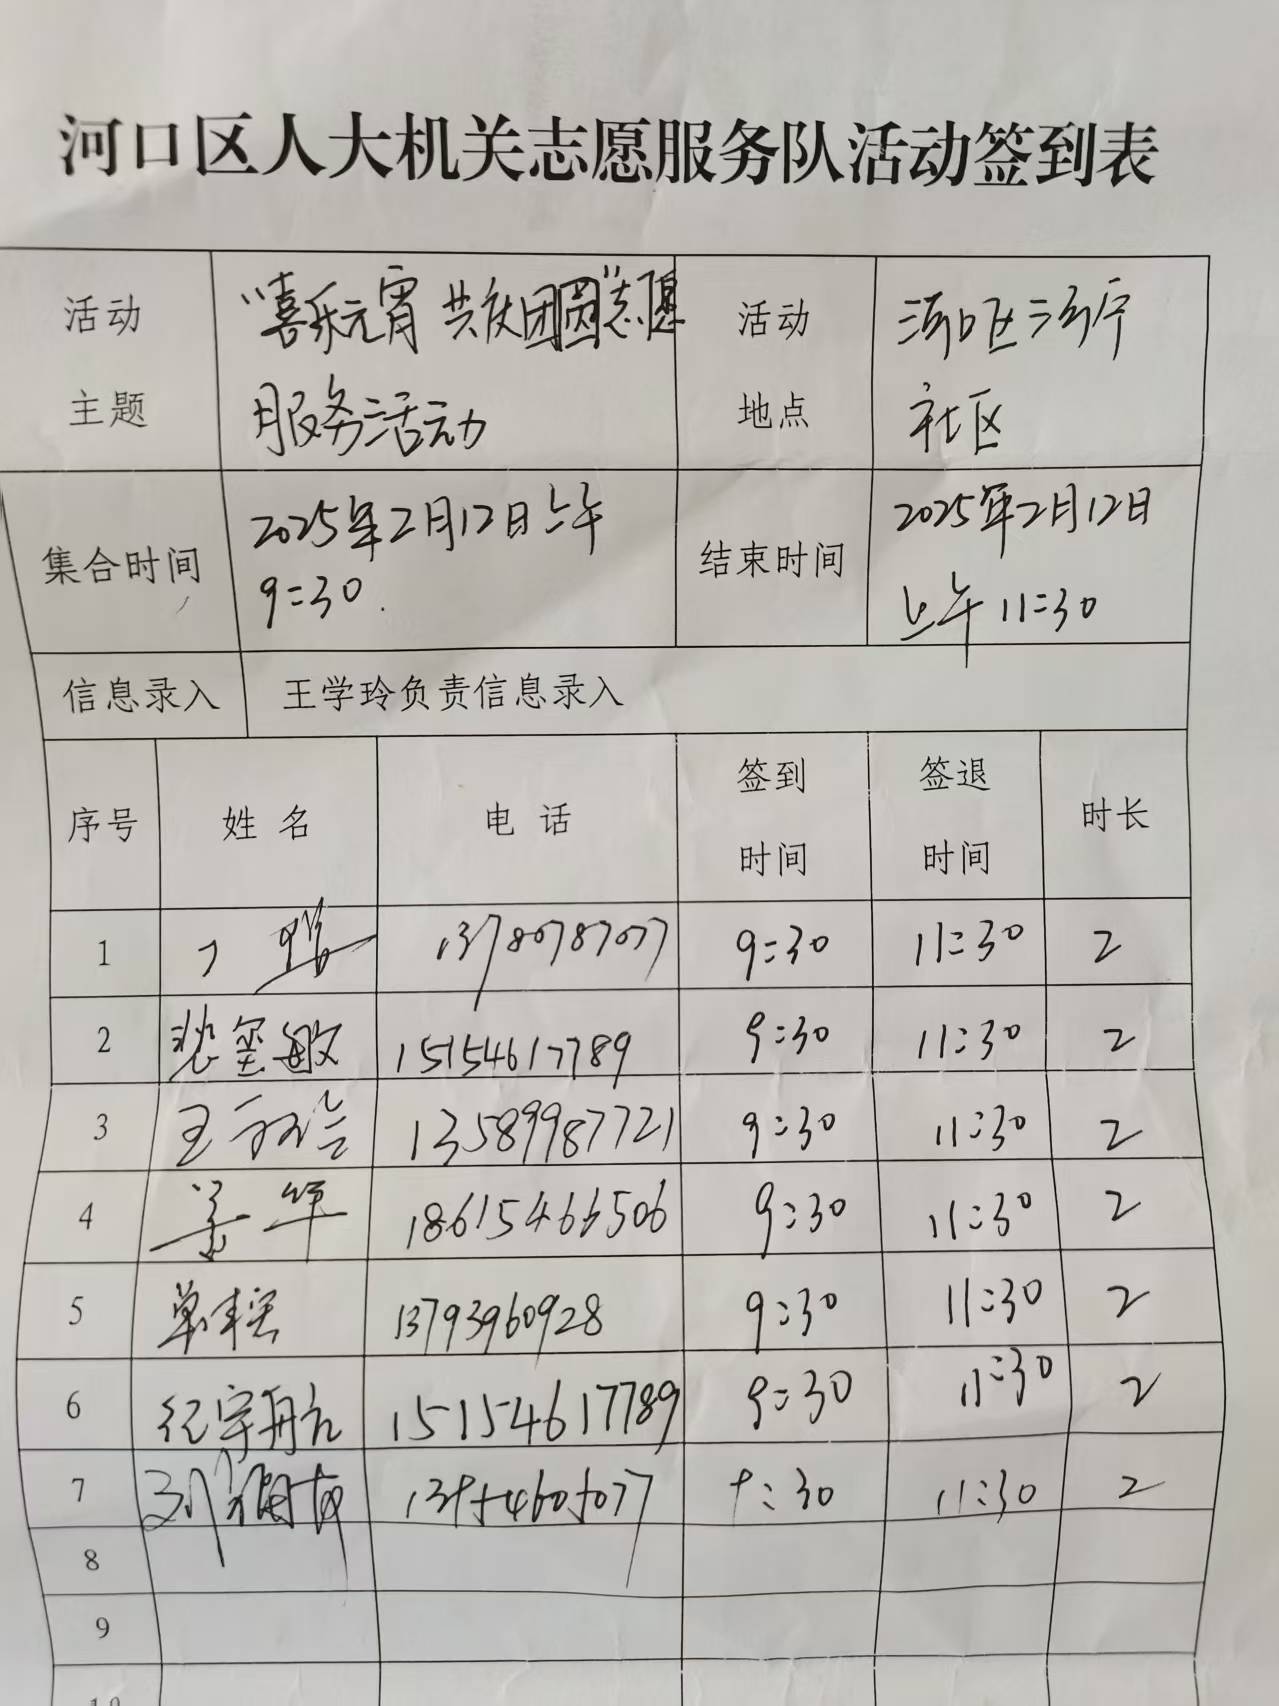 河口区人大机关志愿服务队活动签到表
活动主题 "喜乐元宵 共庆团圆"志愿服务活动 活动地点 河口区河宁社区
集合时间 2025年2月12日上午9:30. 结束时间 2025年2月12日上午11:30
信息录入 王学玲负责信息录入
序号 姓名 电话 签到时间 签退时间 时长
1 13780787077 9:30 11:30 2
2 15154617789 9:30 11:30 2
3 王 13589987721 9:30 11:30 2
4 姜华 18615466506 9:30 11:30 2
5 单 13793960928 9:30 11:30 2
6 纪宇航 15154617789 9:30 11:30 2
7 刘 :30 11:30 2
8
9
10